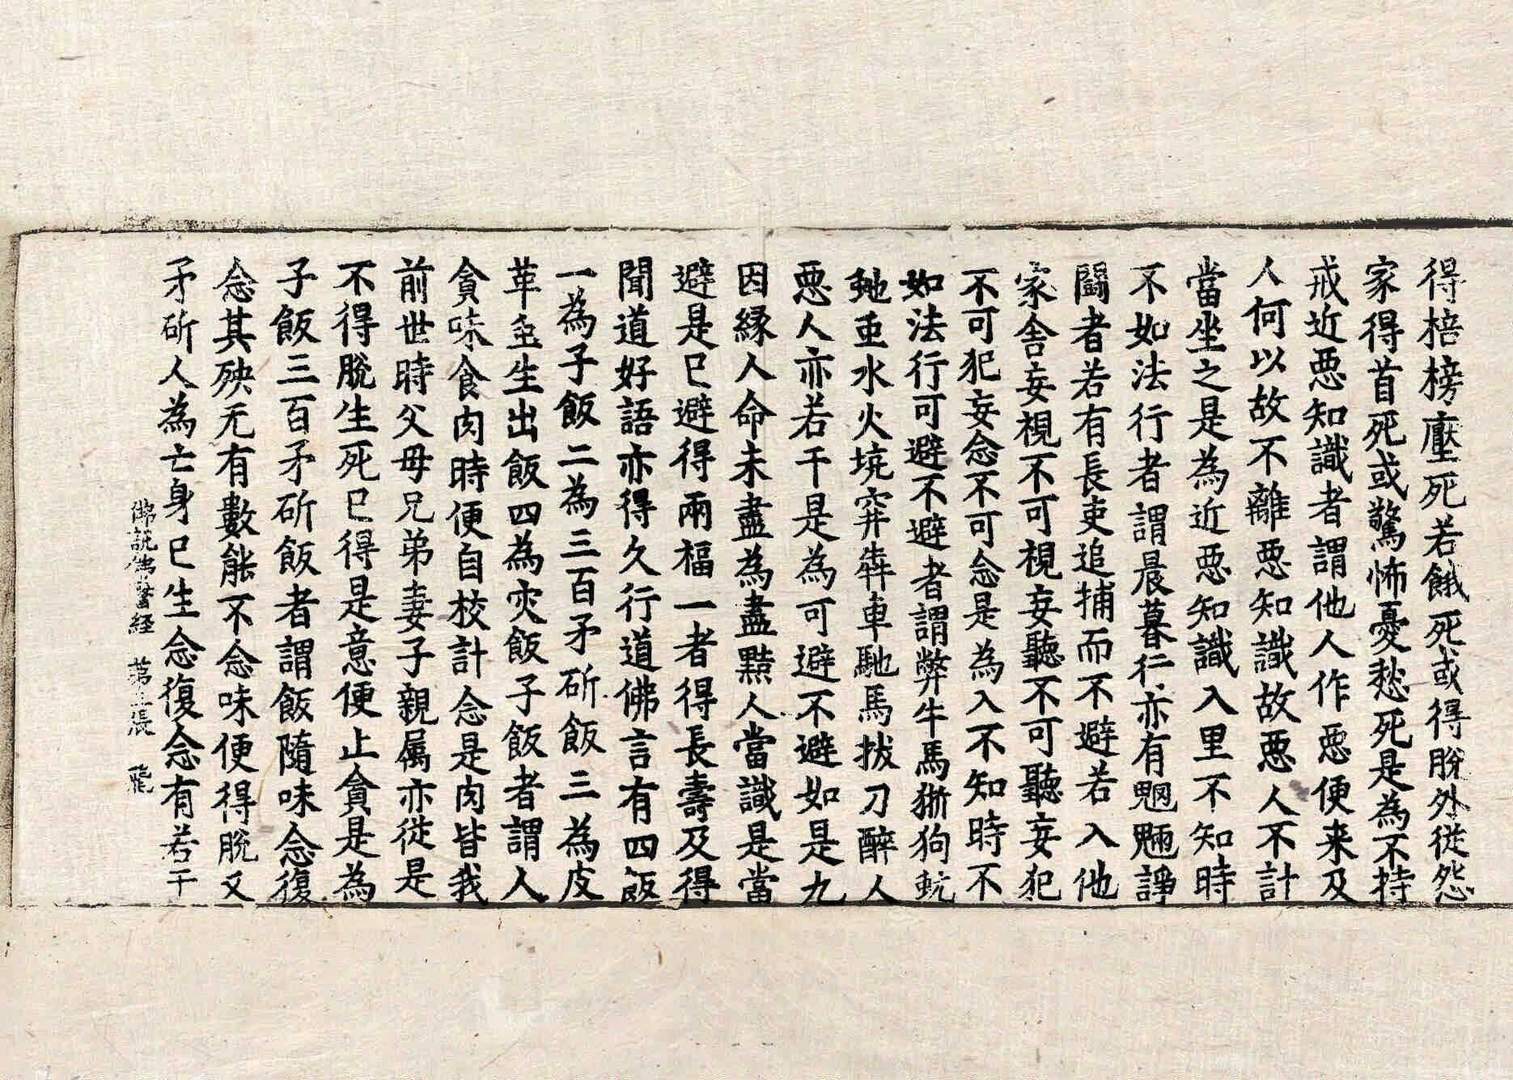 得棓榜壓死若餓死或得脫外從怨
家得首死或驚怖憂愁死是為不持
戒近惡知識者謂他人作惡便来及
人何以故不離惡知識故惡人不計
當坐之是為近惡知識入里不知時
不如法行者謂晨暮行亦有魍魎諍
鬪者若有長吏追捕而不避若入他
家舍妄視不可視妄聽不可聽妄犯
不可犯妄念不可念是為入不知時不
如法行可避不避者謂弊牛馬猘狗蚖
虵䖝水火坑穽犇車馳馬拔刀醉人
惡人亦若干是為可避不避如是九
因緣人命未盡為盡黠人當識是當
避是已避得兩福一者得長壽及得
聞道好語亦得久行道佛言有四飯
一為子飯二為三百矛斫飯三為皮
革䖝生出飯四為灾飯子飯者謂人
貪味食肉時便自校計念是肉皆我
前世時父母兄弟妻子親属亦從是
不得脫生死已得是意便止貪是為
子飯三百矛斫飯者謂飯隨味念復
念其殃无有數能不念味便得脫又
矛斫人為亡身已生念復念有若干
佛說佛醫經 第三張